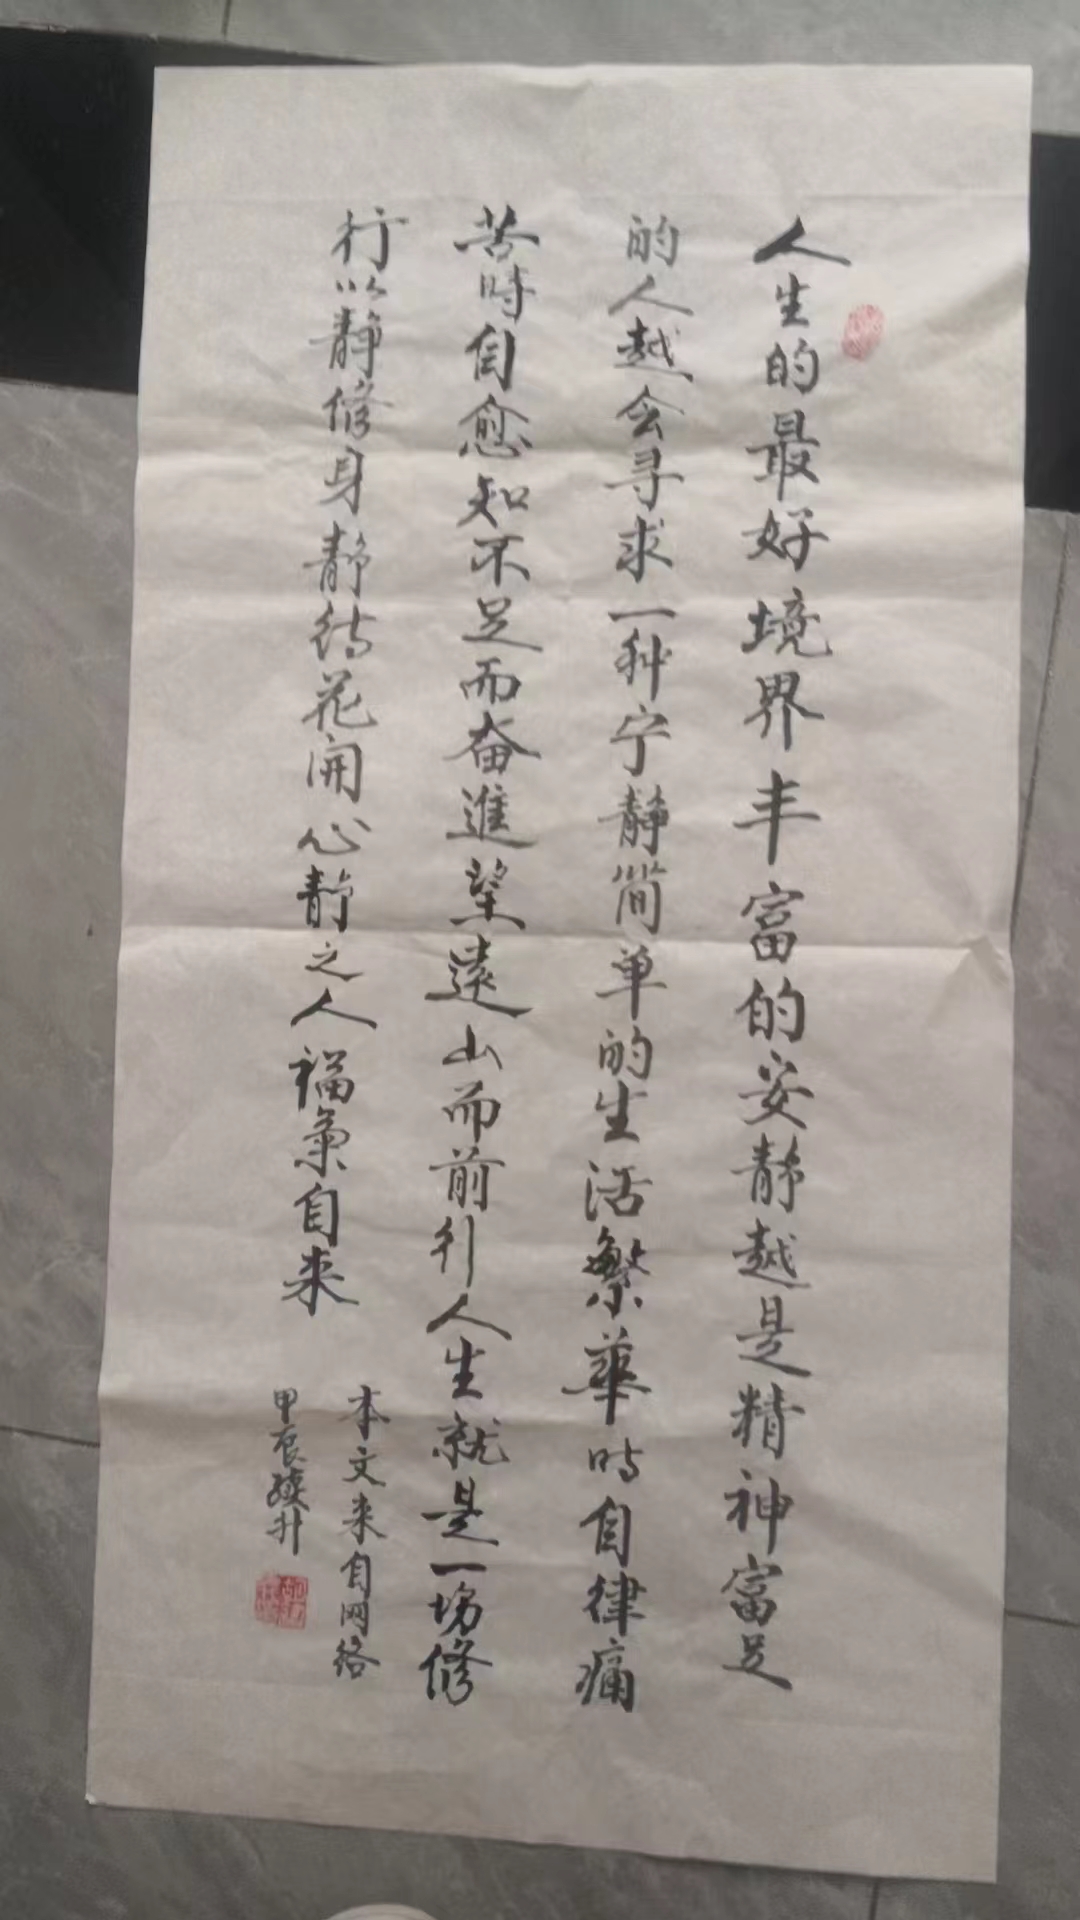 人生的最好境界丰富的安静越是精神富足
的人越会寻求一种宁静简单的生活繁華时自律痛
苦時自愈知不足而奋進望遠山而前行人生就是一场修
行以静修身静待花開心静之人福氣自来
本文来自网络
甲辰 升